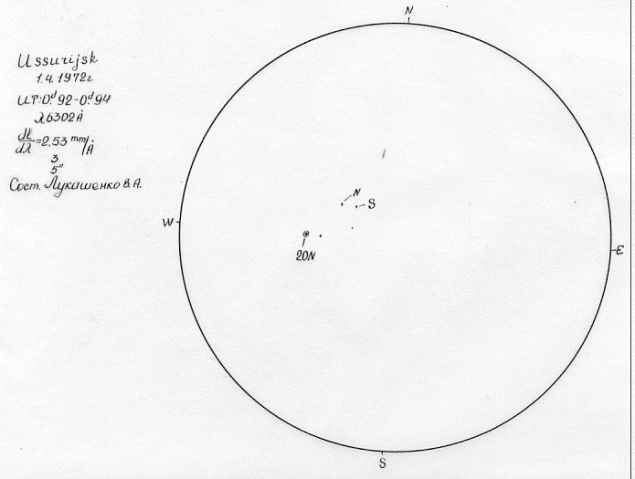 Ussurijsk
1.4.1972г
UT:0.ᵈ92-0.ᵈ94
λ6302Å
dl/dλ=2.53 mm/Å
3
5"
Сост. Лукашенко В.А.
N
N
S
W
20N
E
S